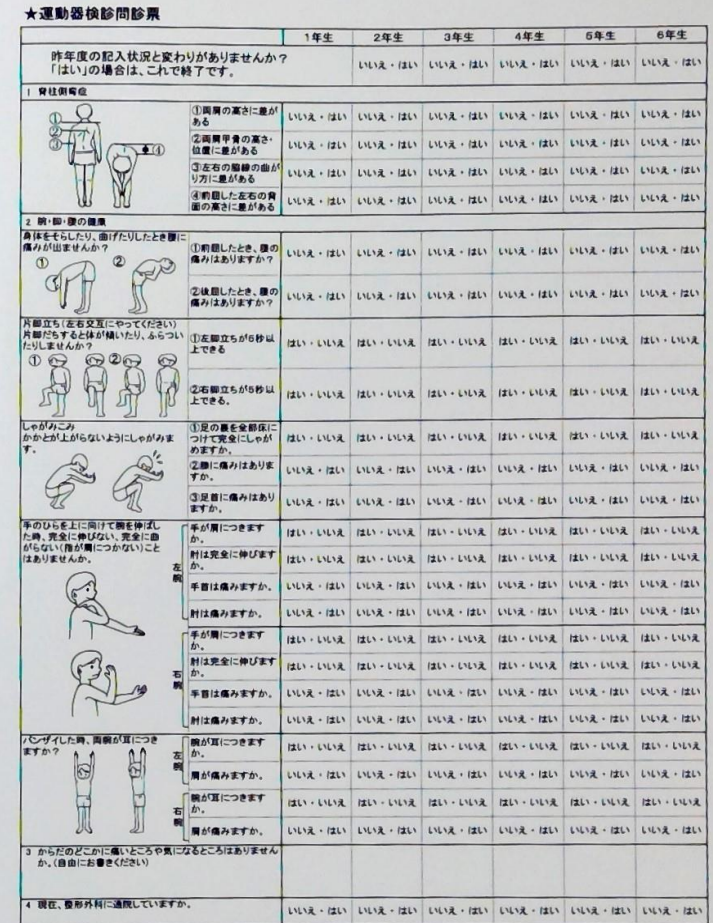 ★運動器検診問診票
1年生 2年生 3年生 4年生 5年生 6年生
昨年度の記入状況と変わりがありませんか?
「はい」の場合は、これで終了です。
いいえ・はい いいえ・はい いいえ・はい いいえ・はい いいえ・はい
1 脊柱側弯症
① ② ③ ④
①両肩の高さに差が
ある
いいえ・はい いいえ・はい いいえ・はい いいえ・はい いいえ・はい いいえ・はい
②両肩甲骨の高さ・
位置に差がある
いいえ・はい いいえ・はい いいえ・はい いいえ・はい いいえ・はい いいえ・はい
③左右の脇線の曲が
り方に差がある
いいえ・はい いいえ・はい いいえ・はい いいえ・はい いいえ・はい いいえ・はい
④前屈した左右の背
面の高さに差がある
いいえ・はい いいえ・はい いいえ・はい いいえ・はい いいえ・はい いいえ・はい
2 腕・脚・腰の健康
身体をそらしたり、曲げたりしたとき腰に
痛みが出ませんか?
① ②
①前屈したとき、腰の
痛みはありますか?
いいえ・はい いいえ・はい いいえ・はい いいえ・はい いいえ・はい いいえ・はい
②後屈したとき、腰の
痛みはありますか?
いいえ・はい いいえ・はい いいえ・はい いいえ・はい いいえ・はい いいえ・はい
片脚立ち(左右交互にやってください)
片脚だちすると体が傾いたり、ふらつい
たりしませんか?
① ②
①左脚立ちが5秒以
上できる
はい・いいえ はい・いいえ はい・いいえ はい・いいえ はい・いいえ はい・いいえ
②右脚立ちが5秒以
上できる。
はい・いいえ はい・いいえ はい・いいえ はい・いいえ はい・いいえ はい・いいえ
しゃがみこみ
かかとが上がらないようにしゃがみま
す。
①足の裏を全部床に
つけて完全にしゃが
めますか。
はい・いいえ はい・いいえ はい・いいえ はい・いいえ はい・いいえ はい・いいえ
②腰に痛みはありま
すか。
いいえ・はい いいえ・はい いいえ・はい いいえ・はい いいえ・はい いいえ・はい
③足首に痛みはあり
ますか。
いいえ・はい いいえ・はい いいえ・はい いいえ・はい いいえ・はい いいえ・はい
手のひらを上に向けて腕を伸ばし
た時、完全に伸びない、完全に曲
がらない(指が肩につかない)こと
はありませんか。
左腕
手が肩につきます
か。
はい・いいえ はい・いいえ はい・いいえ はい・いいえ はい・いいえ はい・いいえ
肘は完全に伸びます
か。
はい・いいえ はい・いいえ はい・いいえ はい・いいえ はい・いいえ はい・いいえ
手首は痛みますか。
いいえ・はい いいえ・はい いいえ・はい いいえ・はい いいえ・はい いいえ・はい
肘は痛みますか。
いいえ・はい いいえ・はい いいえ・はい いいえ・はい いいえ・はい いいえ・はい
右腕
手が肩につきます
か。
はい・いいえ はい・いいえ はい・いいえ はい・いいえ はい・いいえ はい・いいえ
肘は完全に伸びます
か。
はい・いいえ はい・いいえ はい・いいえ はい・いいえ はい・いいえ はい・いいえ
手首は痛みますか。
いいえ・はい いいえ・はい いいえ・はい いいえ・はい いいえ・はい いいえ・はい
肘は痛みますか。
いいえ・はい いいえ・はい いいえ・はい いいえ・はい いいえ・はい いいえ・はい
バンザイした時、両腕が耳につき
ますか?
左腕
腕が耳につきます
か。
はい・いいえ はい・いいえ はい・いいえ はい・いいえ はい・いいえ はい・いいえ
肩が痛みますか。
いいえ・はい いいえ・はい いいえ・はい いいえ・はい いいえ・はい いいえ・はい
右腕
腕が耳につきます
か。
はい・いいえ はい・いいえ はい・いいえ はい・いいえ はい・いいえ はい・いいえ
肩が痛みますか。
いいえ・はい いいえ・はい いいえ・はい いいえ・はい いいえ・はい いいえ・はい
3 からだのどこかに痛いところや気になるところはありません
か。(自由にお書きください)
4 現在、整形外科に通院していますか。
いいえ・はい いいえ・はい いいえ・はい いいえ・はい いいえ・はい いいえ・はい